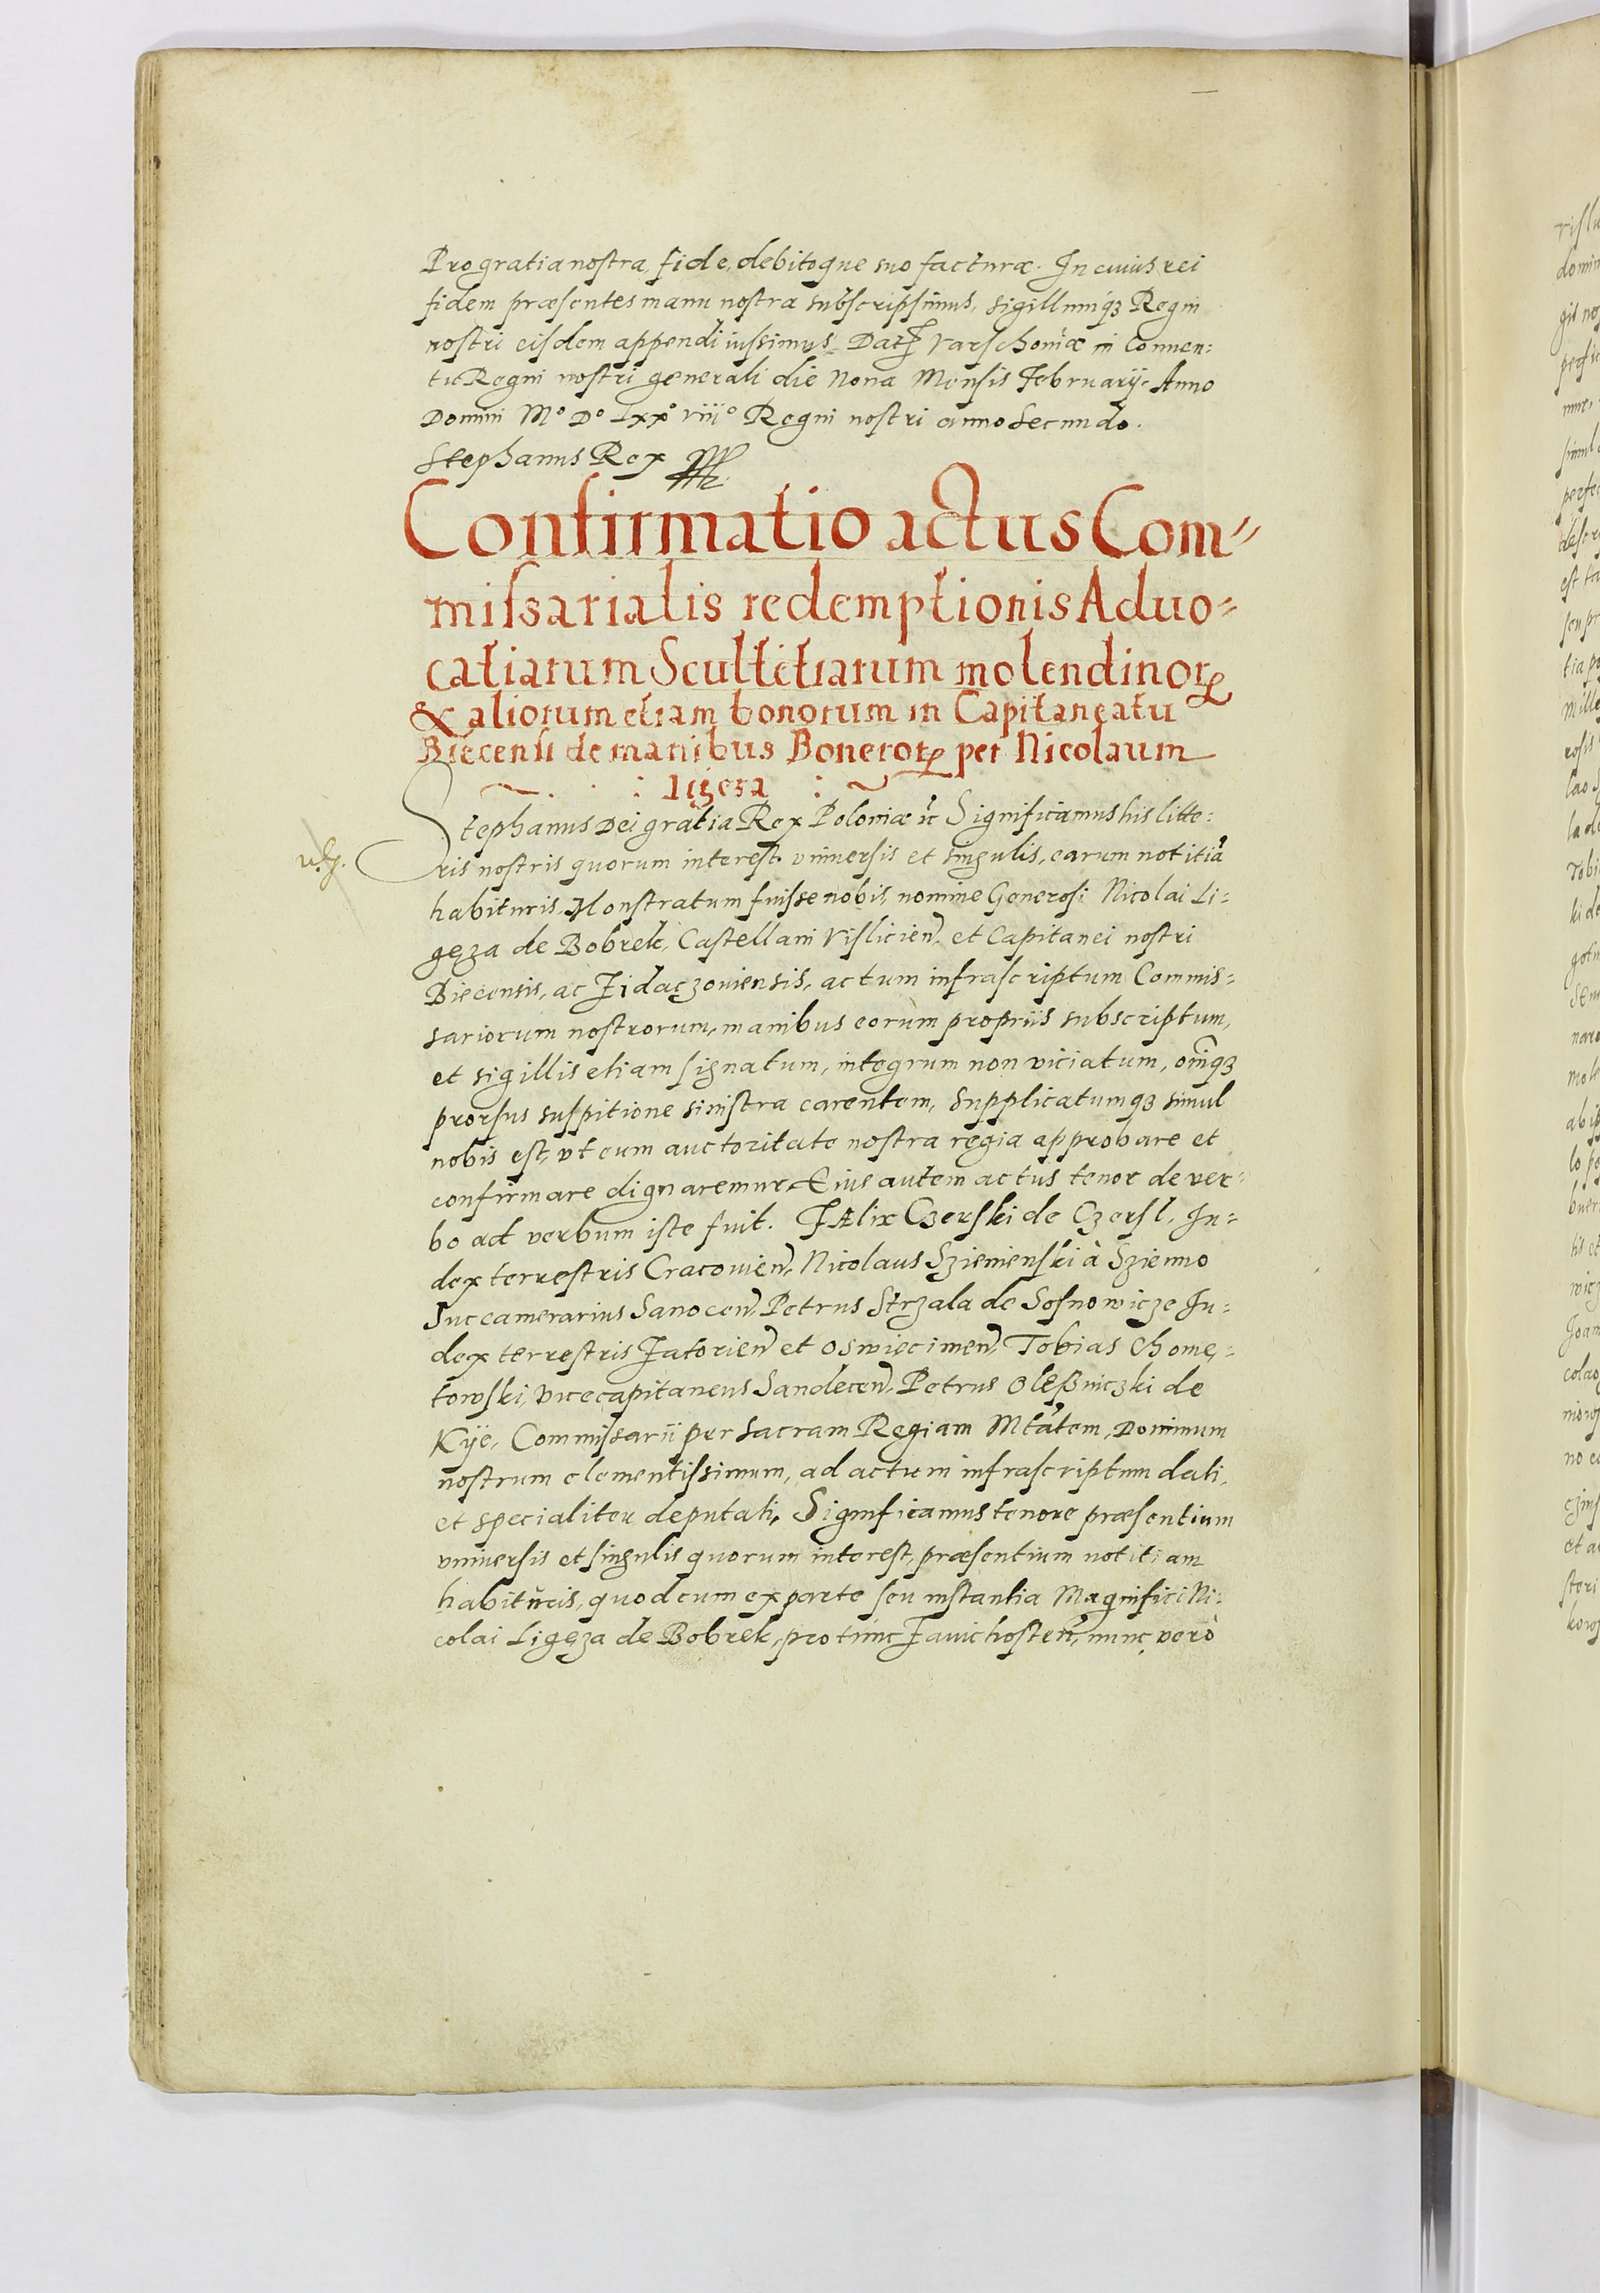 Pro gratia nostra, fide, debitoque suo facturæ. In cuius rei
fidem præsentes manu nostra subscripsimus, sigillumqꝫ Regni
nostri eisdem appendi iussimus. Datꝭ Varschoniæ in Conuen:
tu Regni nostri generali die Nona Mensis Februarij. Anno
Domini Mº Dº Lxxº viiiº Regni nostri anno Secundo.
Stephanus Rex
Confirmatio actus Com-
missarialis redemptionis Aduo-
catiarum Scultetiarum molendinoꝝ
& aliorum etiam bonorum in Capitaneatu
Biecensi de manibus Boneroꝝ per Nicolaum
Ligeza
Stephanus Dei gratia Rex Poloniæ ꝛc Significamus his litte:
ris nostris quorum interest vniuersis et singulis, earum notitiã
habituris, Monstratum fuisse nobis, nomine Generosi Nicolai Li-
gęza de Bobrek, Castellani Visliciеñ. et Capitanei nostri
Biecensis, ac Zidaczouiensis, actum infrascriptum Commis-
sariorum nostrorum, manibus eorum proprijs subscriptum,
et sigillis etiam signatum, integrum non viciatum, om̃iqꝫ
prorsus suspitione sinistra carentem, Supplicatumqꝫ simul
nobis est, vt eum auctoritate nostra regia approbare et
confirmare dignaremur. Eius autem actus tenor de ver-
bo ad verbum iste fuit. Fælix Czerski de Czersl. Iu-
dex terrestris Cracouień. Nicolaus Szienienski à Szienno
Succamerarius Sanoceñ. Petrus Strzala de Sosnowicze Iu-
dex terrestris Zatorieñ et Oswiecimeñ, Tobias Chomę-
towski, vicecapitaneus Sandeceñ. Petrus Oleßniczki de
Kÿe, Commissarii per Sacram Regiam Mtãtem, Dominum
nostrum clementissimum, ad actum infrascriptum dati,
et specialiter deputati, Significamus tenore præsentium
vniuersis et singulis quorum interest, præsentium notitiam
habituris, quod cum ex parte seu instantia Magnifici Ni-
colai Ligęza de Bobrek, pro tunc Zauichosteñ, nunc verò